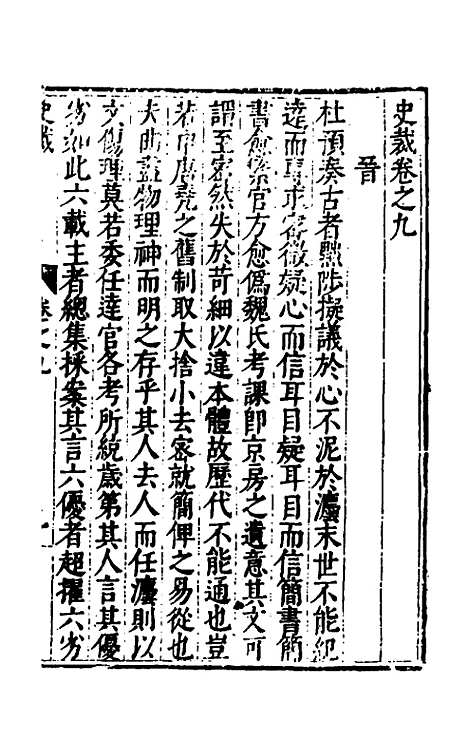 史裁卷之九
晉
杜預奏古者黜陟擬議於心不泥於灋末世不能紀
遠而專求密微疑心而信耳目疑耳目而信簡書簡
書愈繁官方愈僞魏氏考課即京房之遺意其文可
謂至密然失於苛細以違本體故歷代不能通也豈
若申唐堯之舊制取大捨小去密就簡俾之易從也
夫曲盡物理神而明之存乎其人去人而任灋則以
文傷理莫若委任達官各考所統歲第其人言其優
劣如此六載主者總集採案其言六優者超擢六劣
史裁
卷之九
一